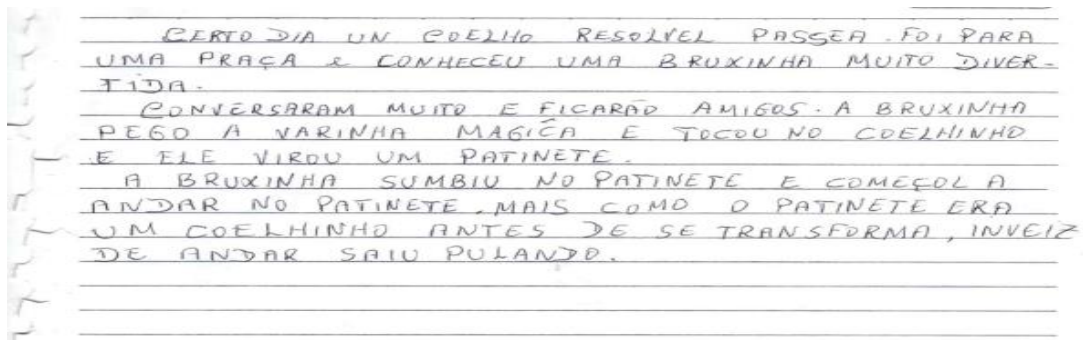 CERTO DIA UN COELHO RESOLVEL PASSEA. FOI PARA
UMA PRAÇA E CONHECEU UMA BRUXINHA MUITO DIVER-
TIDA.
CONVERSARAM MUITO E FICARÃO AMIGOS. A BRUXINHA
PEGO A VARINHA MAGICA E TOCOU NO COELHINHO
E ELE VIROU UM PATINETE.
A BRUXINHA SUMBIU NO PATINETE E COMEÇOL A
ANDAR NO PATINETE, MAIS COMO O PATINETE ERA
UM COELHINHO ANTES DE SE TRANSFORMA, INVEIZ
DE ANDAR SAIU PULANDO.